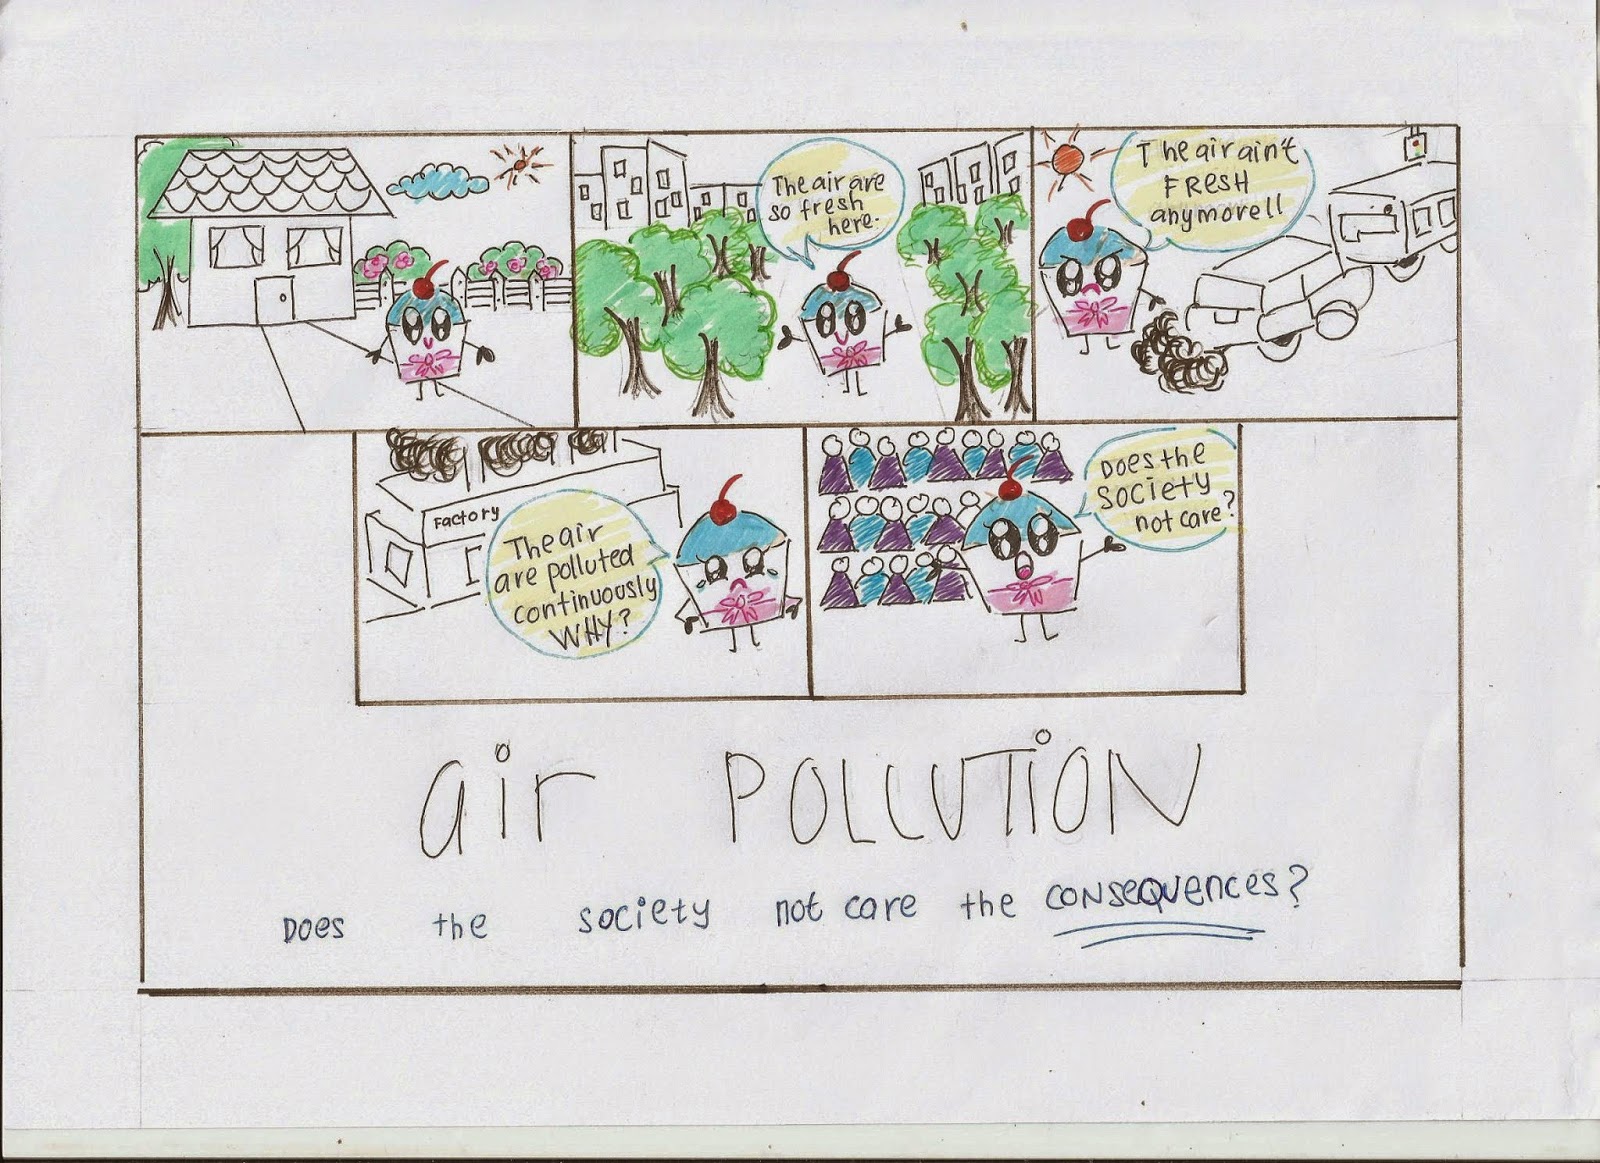 The air are
so fresh
here.
The air ain't
FRESH
anymore!!
Factory
The air
are polluted
continuously
WHY?
Does the
society
not care?
air POLLUTION
Does the society not care the consequences?